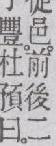 徙邑。前後二
豐。杜預曰